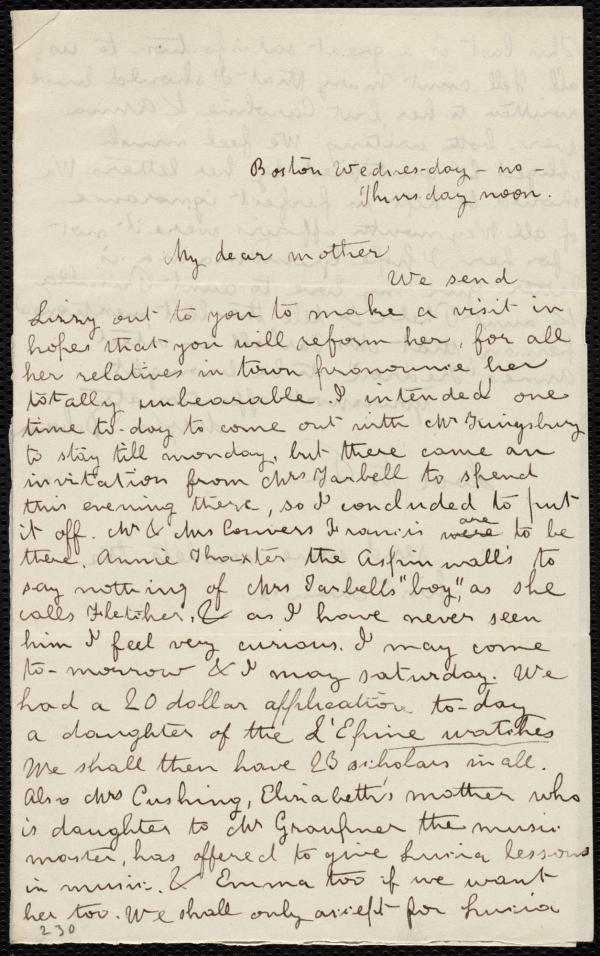 Boston Wednes-day - no -
Thursday noon.
My dear mother
We send
Lizzy out to you to make a visit in
hopes that you will reform her, for all
her relatives in town pronounce her
totally unbearable. I intended one
time to-day to come out with Mr Kingsbury
to stay till monday, but there came an
invitation from Mrs Tarbell to spend
this evening there, so I concluded to put
it off. Mr & Mrs Convers Francis were are to be
there, Annie Thaxter the Aspinwalls to
say nothing of Mrs Tarbells "boy," as she
calls Fletcher, & as I have never seen
him I feel very curious. I may come
to-morrow & I may saturday. We
had a 20 dollar application to-day
a daughter of the L'Epine watches
We shall then have 23 scholars in all.
Also Mrs Cushing, Elizabeth's mother who
is daughter to Mr Graupner the music
master, has offered to give Lucia lessons
in music. & Emma too if we want
her too. We shall only accept for Lucia
230